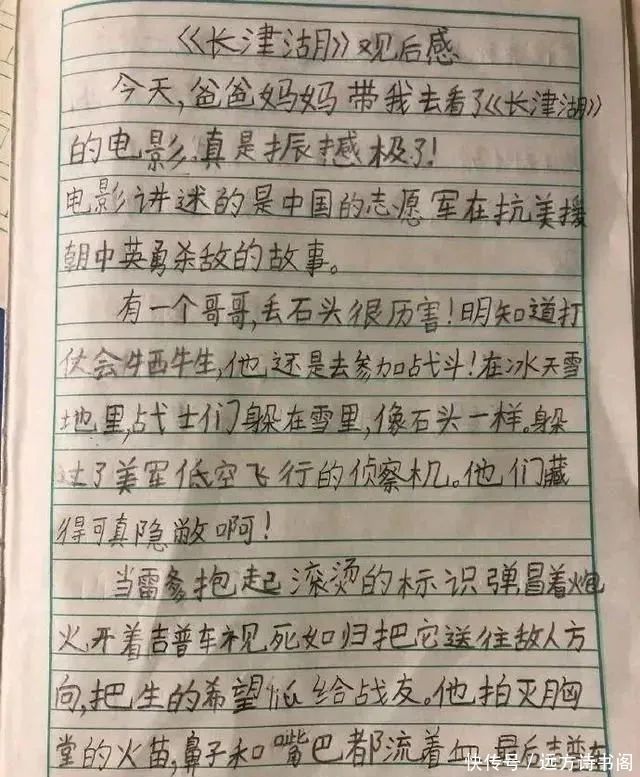 《长津湖》观后感
今天,爸爸妈妈带我去看了《长津湖》
的电影,真是振撼极了!
电影讲迷的是中国的志愿军在抗美援
朝中英勇杀敌的故事。
有一个哥哥,丢石头很历害!明知道打
仗会牺牲,他还是去参加战斗!在冰天雪
地里,战士们躲在雪里,像石头一样。躲
过了美军低空飞行的侦察机。他们藏
得可真隐敝啊!
当雷爹抱起滚烫的标识弹冒着炮
火,开着吉普车视死如归把它送往敌人方
向,把生的希望 给战友。他拍灭胸
堂的火苗,鼻子和嘴巴都流着血,最后吉普车
快传号/远方诗书阁